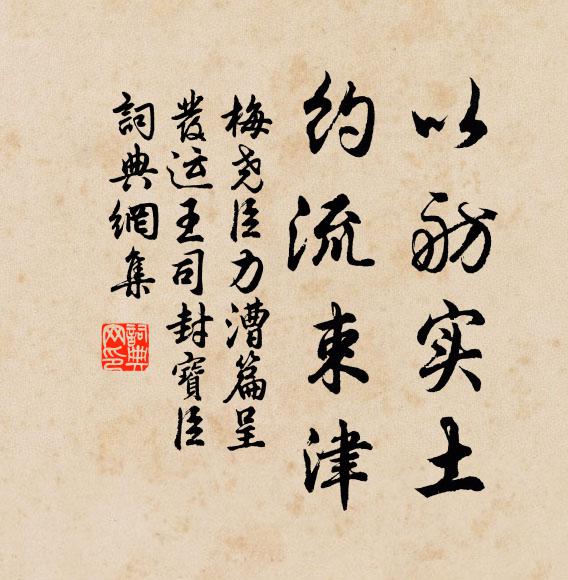 以舫实土
约流束津
梅尧臣力漕篇呈
發运王司封寶臣
詞典網集
詞典
网印